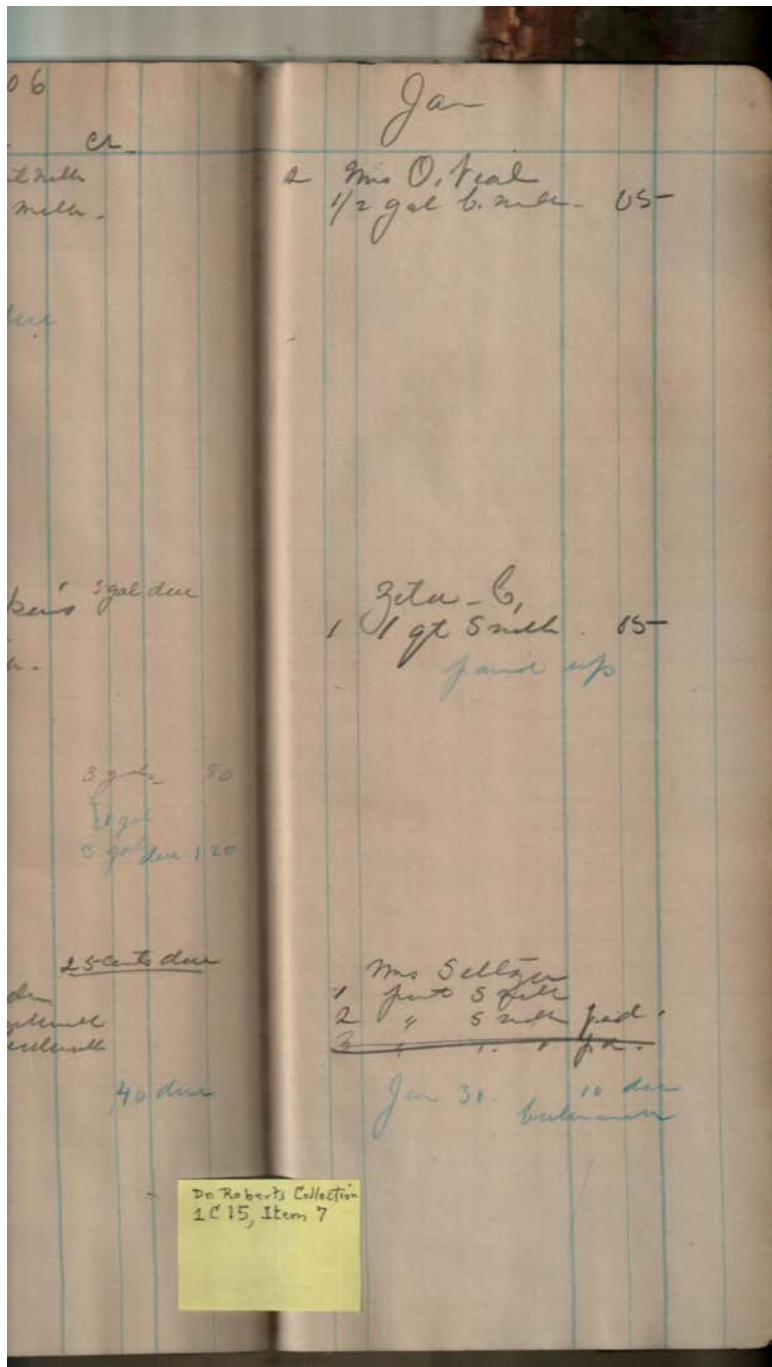 06
Cr.
milk
due
3 gal due
3 gals 80
1 gal
3 gal due 1 20
25 cents due
40 due
Jan
2 Mrs O. Neal
1/2 gal b. milk. 05
Zeta - C,
1 1 qt S milk. 05
paid up
Mrs Seltzer
1 pint S milk
2 " S milk pad.
3 " " " pd.
Jan 30. 10 due
Dr Roberts Collection
1 C 15, Item 7